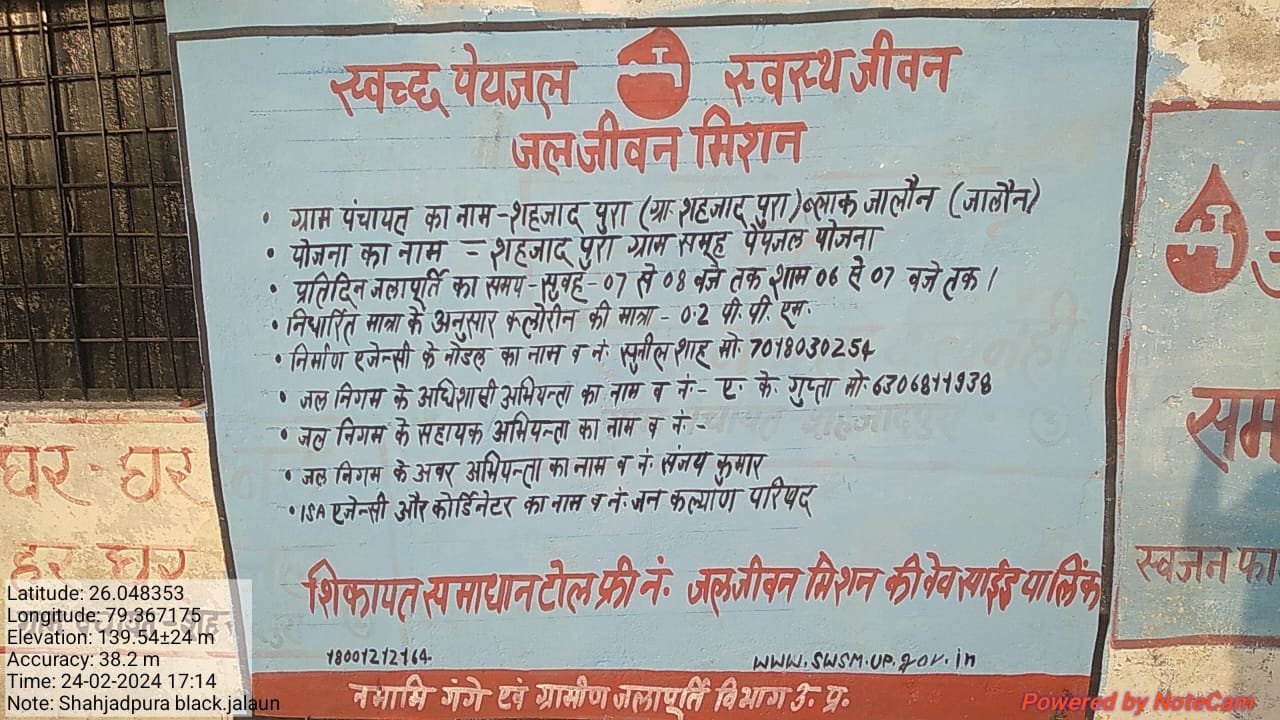 स्वच्छ पेयजल स्वस्थ जीवन
जल जीवन मिशन
• ग्राम पंचायत का नाम - शहजाद पुरा (ग्रा. शहजाद पुरा) ब्लाक जालौन (जालौन)
• योजना का नाम = शहजाद पुरा ग्राम समूह पेयजल योजना
• प्रतिदिन जलापूर्ति का समय - सुवह - 07 से 08 बजे तक शाम 06 से 07 बजे तक।
• निर्धारित मात्रा के अनुसार क्लोरीन की मात्रा - 0.2 पी. पी. एम.
• निर्माण एजेन्सी के नोडल का नाम व नं. सुनील शाह मो. 7018030254
• जल निगम के अधिशासी अभियन्ता का नाम व नं. - ए. के. गुप्ता मो. 6306811938
• जल निगम के सहायक अभियन्ता का नाम व नं. -
• जल निगम के अवर अभियन्ता का नाम व नं. संजय कुमार
• ISA एजेन्सी और कोर्डिनेटर का नाम व नं. जन कल्याण परिषद
शिकायत समाधान टोल फ्री नं. जल जीवन मिशन की वेव साईड या लिंक
18001212164 www.swsm.up.gov.in
नमामि गंगे एवं ग्रामीण जलापूर्ति विभाग उ. प्र.
घर - घर
हर घर
सम
स्वजन फा
Latitude: 26.048353
Longitude: 79.367175
Elevation: 139.54±24 m
Accuracy: 38.2 m
Time: 24-02-2024 17:14
Note: Shahjadpura black.jalaun
Powered by NoteCam